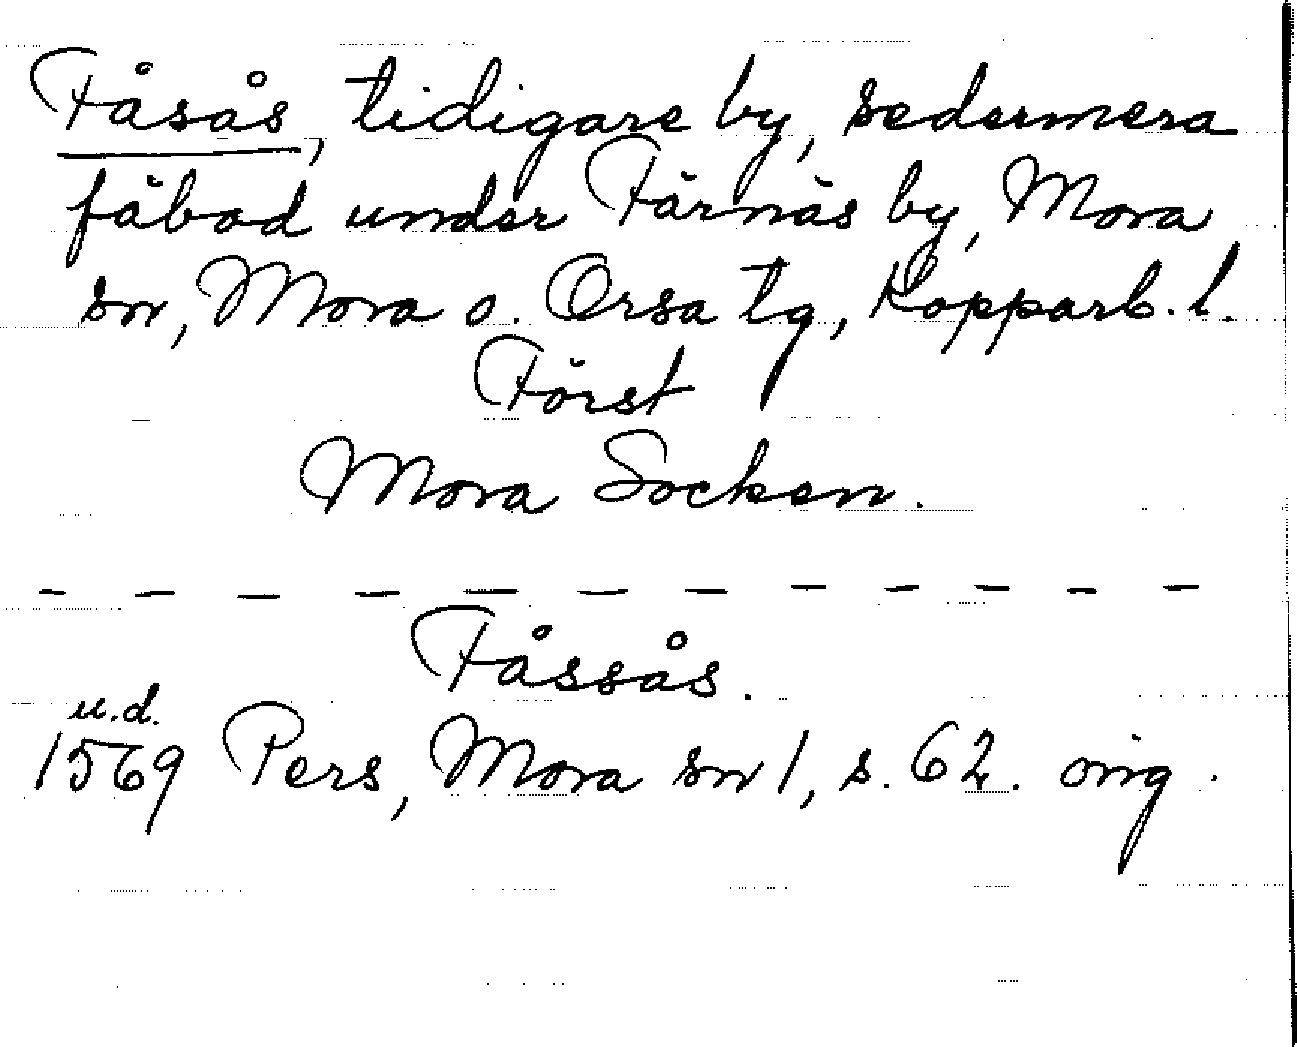 Fåsås, tidigare by, sedermera
fäbod under Färnäs by, Mora
sn, Mora o. Orsa tg, Kopparb. l.
Först
Mora Socken.
Fåssås.
u.d.
1569 Pers, Mora sn 1, s. 62. orig.